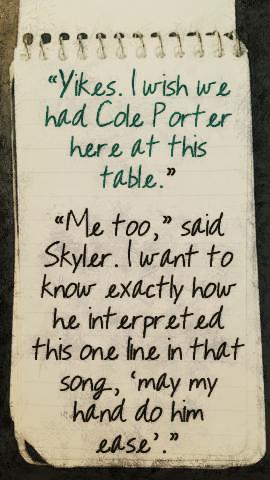 “Yikes. I wish we
had Cole Porter
here at this
table.”
“Me too,” said
Skyler. I want to
know exactly how
he interpreted
this one line in that
song, ‘may my
hand do him
ease’.”